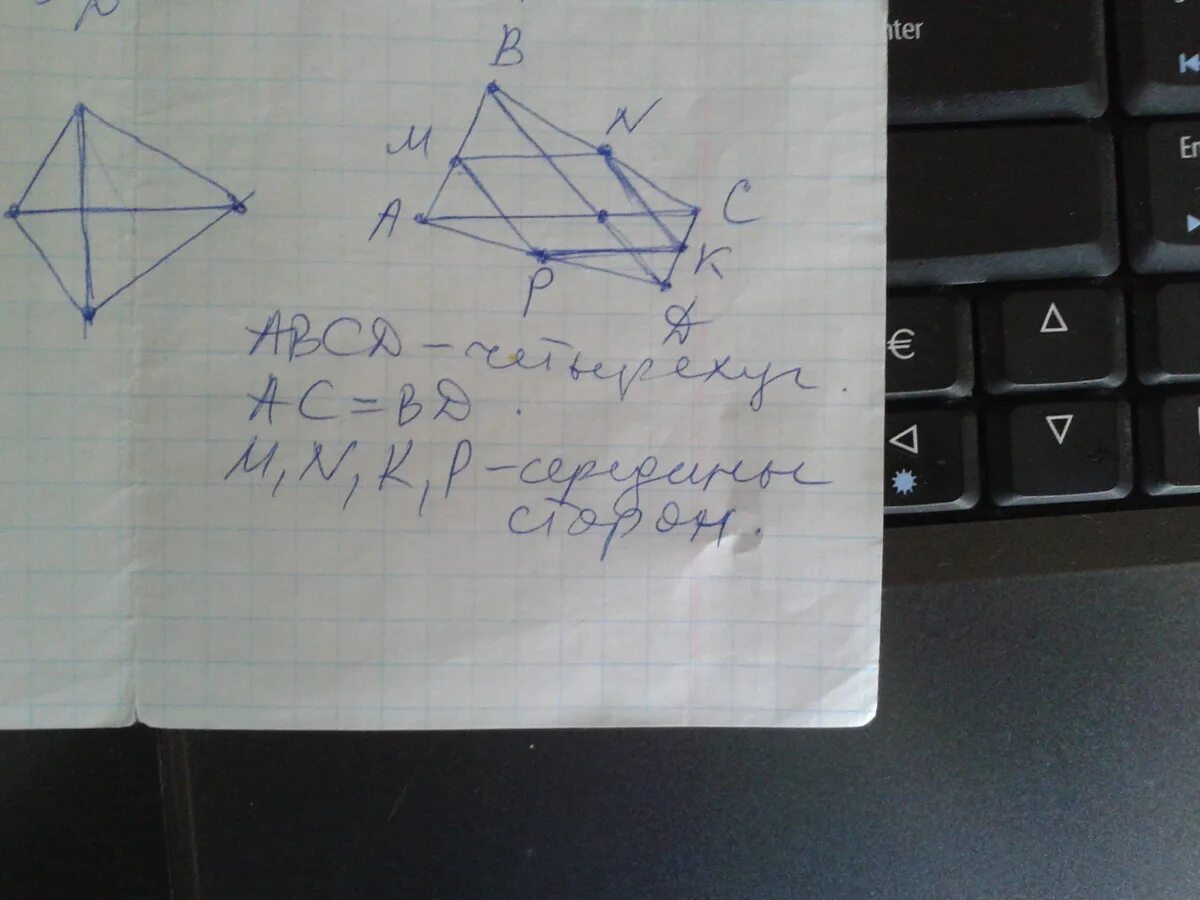 B
M N
A C
P K
D
ABCD – четырехуг.
AC = BD.
M, N, K, P – середины
сторон.
nter
En
€